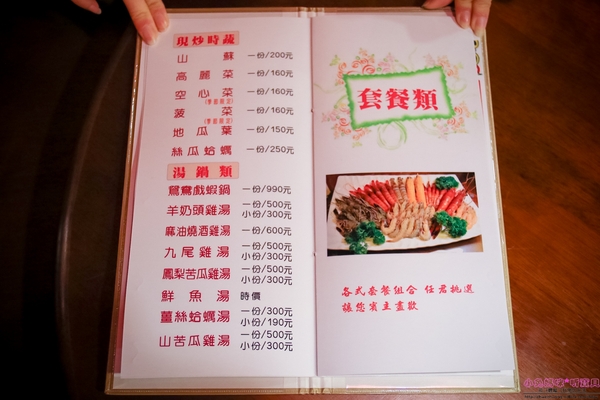 現炒時蔬
山蘇 一份/200元
高麗菜 一份/160元
空心菜 一份/160元
(季節限定)
菠菜 一份/160元
(季節限定)
地瓜葉 一份/150元
絲瓜蛤蠣 一份/250元
湯鍋類
鴛鴦戲蝦鍋 一份/990元
羊奶頭雞湯 一份/500元
小份/300元
麻油燒酒雞湯 一份/600元
九尾雞湯 一份/500元
小份/300元
鳳梨苦瓜雞湯 一份/500元
小份/300元
鮮魚湯 時價
薑絲蛤蠣湯 一份/300元
小份/190元
山苦瓜雞湯 一份/500元
小份/300元
套餐類
各式套餐組合 任君挑選
讓您賓主盡歡